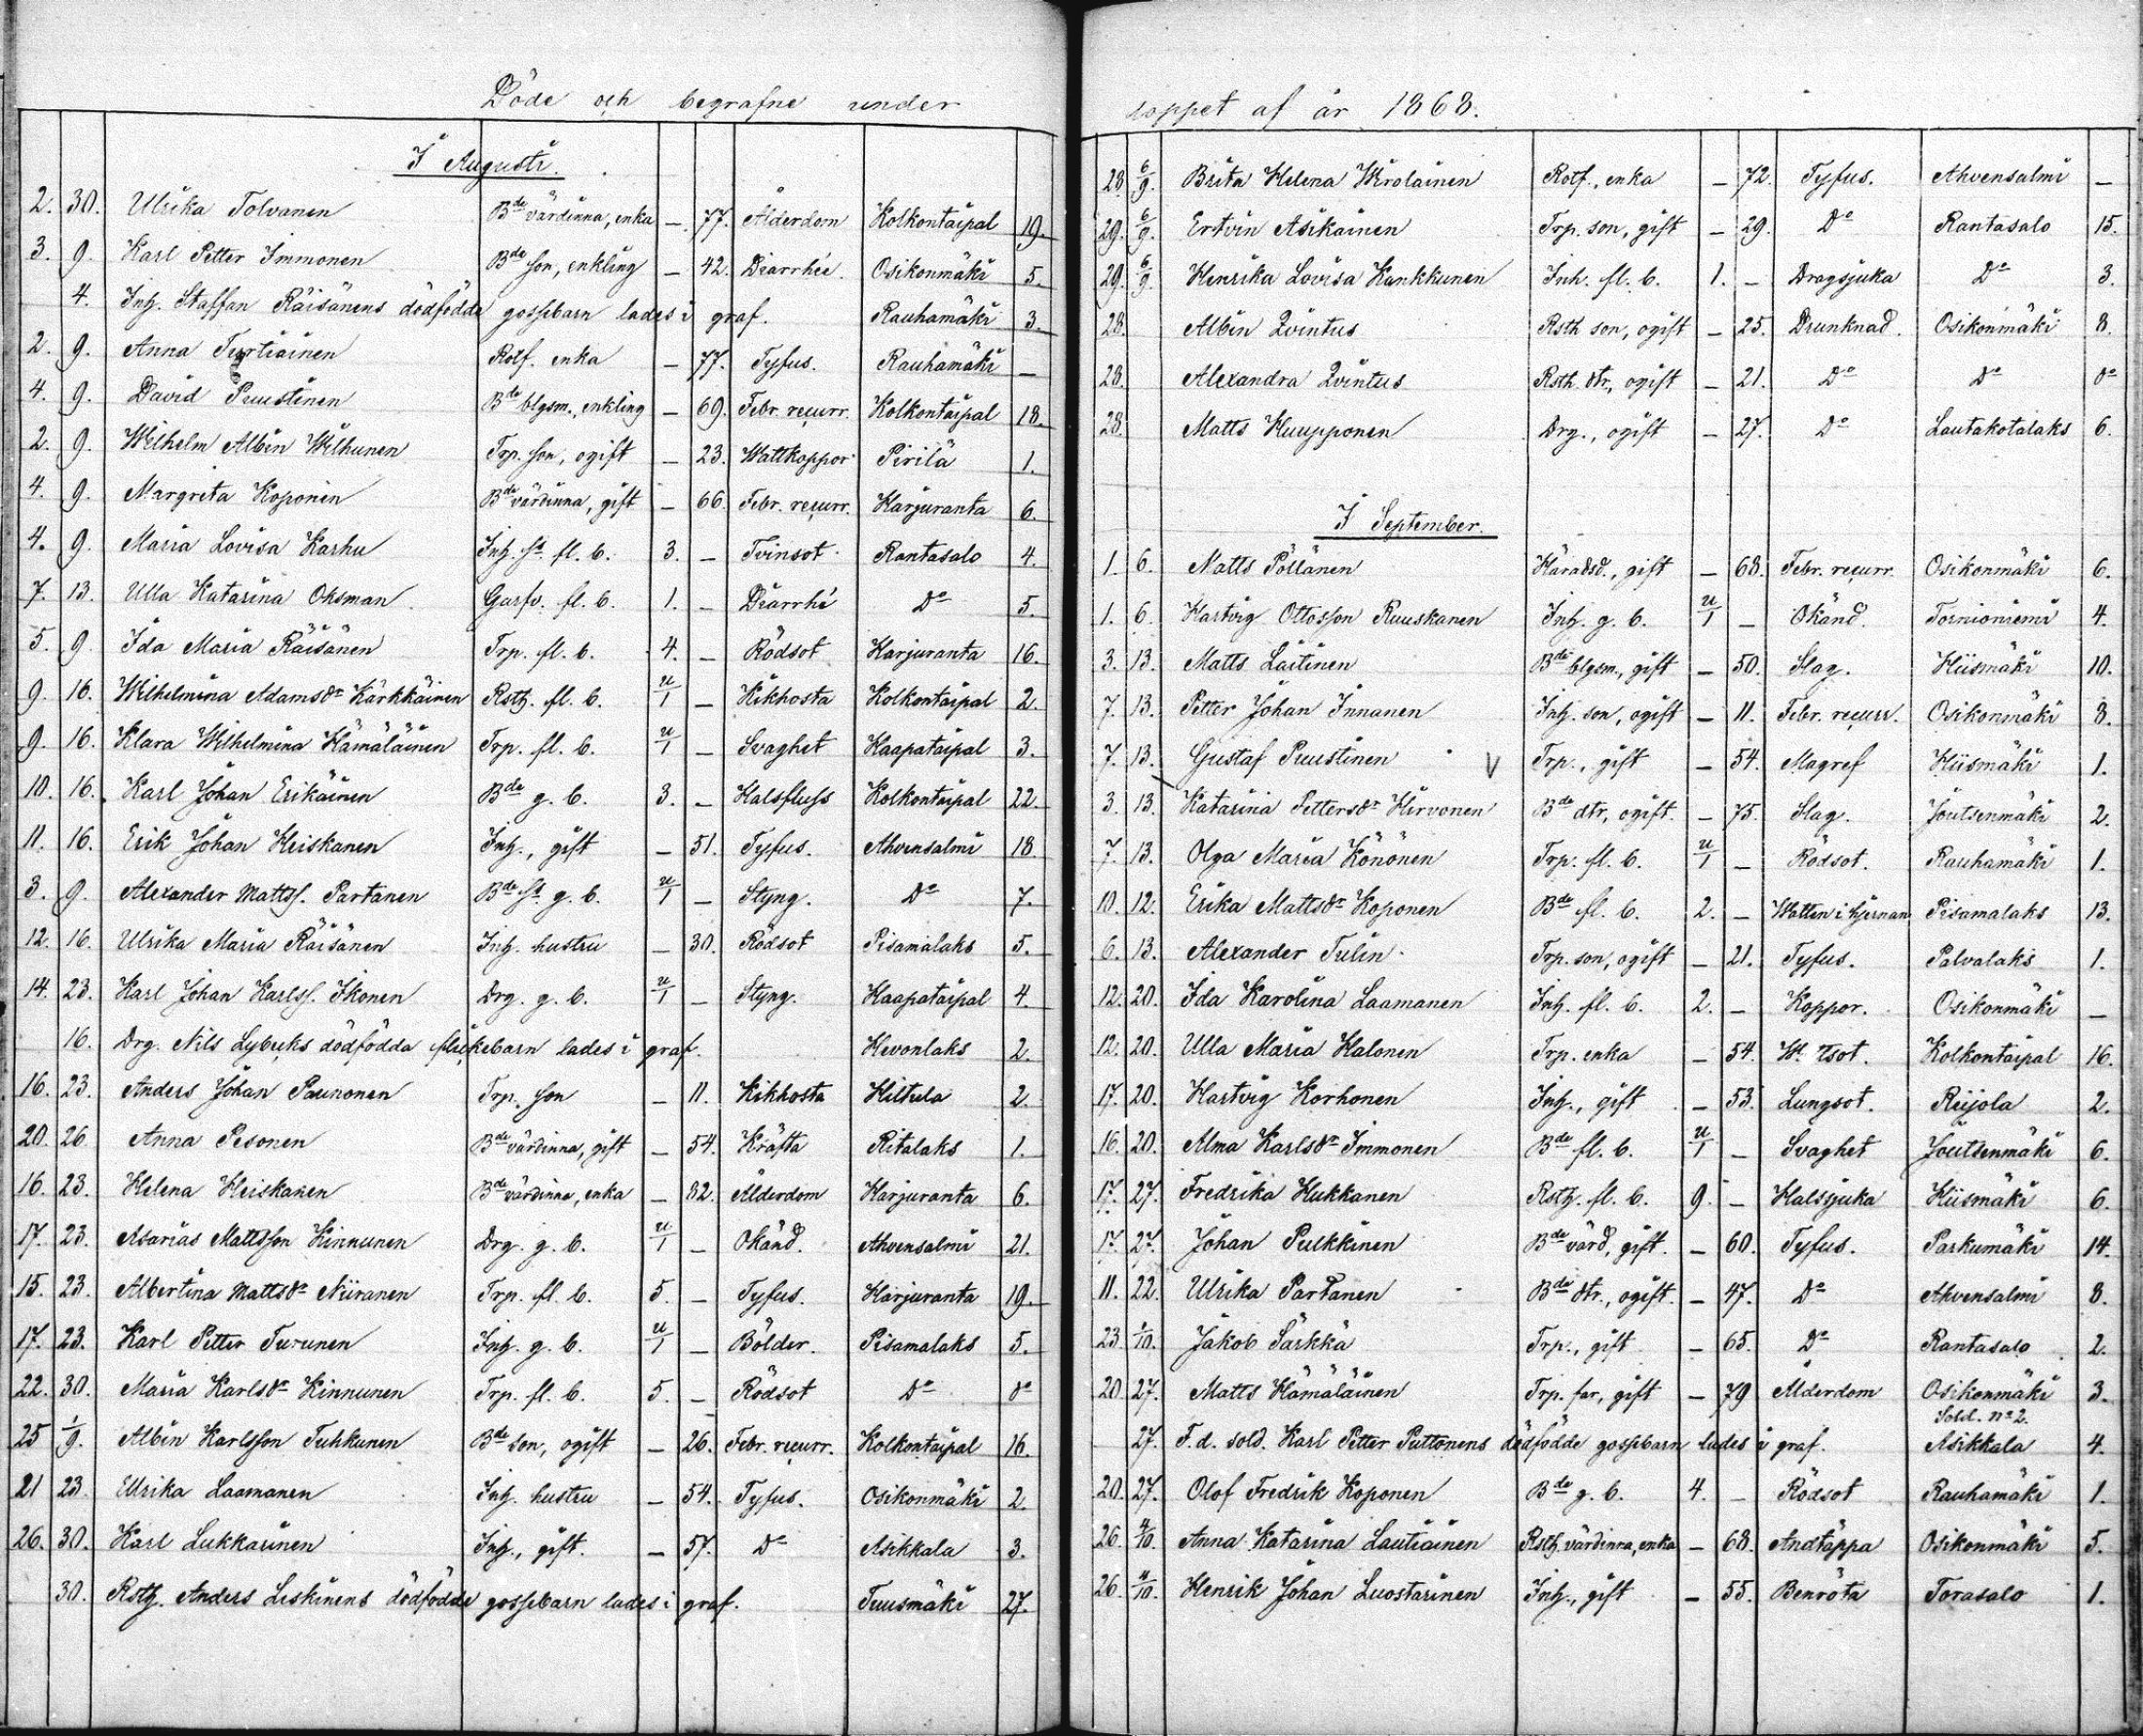 Döde och begrafne under
I Augusti.
2. 30. Ulrika Tolvanen Bde värdinna, enka – 77. Ålderdom Kolkontaipal 19.
3. 9. Karl Petter Immonen Bde son, enkling – 42. Diarrhée. Osikonmäki 5.
4. Inh. Staffan Räisänens dödfödda gossbarn lades i graf. Rauhamäki 3.
2. 9. Anna Turtiainen Rotf. enka – 77. Tyfus. Rauhamäki –
4. 9. David Puustinen Bde blgsm., enkling – 69. Febr. recurr. Kolkontaipal 18.
2. 9. Wilhelm Albin Wilhunen Trp. son, ogift – 23. Wattkoppor Pirilä 1.
4. 9. Margreta Koponen Bde värdinna, gift – 66. Febr. recurr. Harjuranta 6.
4. 9. Maria Lovisa Karhu Inh. fl. b. 3. – Tvinsot Rantasalo 4.
7. 13. Ulla Katarina Oksman Garfv. fl. b. 1. – Diarrhé Do 5.
5. 9. Ida Maria Räisänen Trp. fl. b. 4. – Rödsot Harjuranta 16.
9. 16. Wilhelmina Adamsdr Kärkkäinen Rsth. fl. b. u/1 – Kikhosta Kolkontaipal 2.
9. 16. Klara Wilhelmina Hämäläinen Trp. fl. b. u/1 – Svaghet Haapataipal 3.
10. 16. Karl Johan Erikäinen Bde g. b. 3. – Halsfluss Kolkontaipal 22.
11. 16. Erik Johan Heiskanen Inh., gift – 51. Tyfus. Ahvensalmi 18.
3. 9. Alexander Mattss. Partanen Bde g. b. u/1 – Styng. Do 7.
12. 16. Ulrika Maria Räisänen Inh. hustru – 30. Rödsot Pisamalaks 5.
14. 23. Karl Johan Karlss. Ikonen Drg. g. b. u/1 – Styng. Haapataipal 4.
16. Drg. Nils Lybecks dödfödda flickebarn lades i graf. Hevonlaks 2.
16. 23. Anders Johan Paunonen Trp. son – 11. Kikhosta Hiltula 2.
20. 26. Anna Pesonen Bde värdinna, gift – 54. Kräfta Ritalaks 1.
16. 23. Helena Heiskanen Bde värdinna, enka – 82. Ålderdom Harjuranta 6.
17. 23. Asarias Mattsson Kinnunen Drg. g. b. u/1 – Okänd. Ahvensalmi 21.
15. 23. Albertina Mattsdr Niiranen Trp. fl. b. 5. – Tyfus. Harjuranta 19.
17. 23. Karl Petter Turunen Inh. g. b. u/1 – Bölder. Pisamalaks 5.
22. 30. Maria Karlsdr Kinnunen Trp. fl. b. 5. – Rödsot Do do
25 1/9. Albin Karlsson Tuhkunen Bde son, ogift – 26. Febr. recurr. Kolkontaipal 16.
21 23. Ulrika Laamanen Inh. hustru – 54. Tyfus. Osikonmäki 2.
26. 30. Karl Lukkarinen Inh., gift. – 57. Do Asikkala 3.
30. Rsth. Anders Leskinens dödfödde gossbarn lades i graf. Tuusmäki 27.
loppet af år 1868.
28 6/9. Brita Helena Wirolainen Rotf., enka – 72. Tyfus. Ahvensalmi –
29. 6/9. Ertvin Asikainen Trp. son, gift – 29. Do Rantasalo 15.
29. 6/9. Henrika Lovisa Kankkunen Inh. fl. b. 1. – Dragsjuka Do 3.
28. Albin Qvintus Rsth son, ogift – 25. Drunknad. Osikonmäki 8.
28. Alexandra Qvintus Rsth. dtr., ogift – 21. Do Do do
28. Matts Huupponen Drg., ogift – 27. Do Lautakotalaks 6.
I September.
1. 6. Matts Pöllänen Häradsd., gift – 68. Febr. recurr. Osikonmäki 6.
1. 6. Hartvig Ottosson Ruuskanen Inh. g. b. u/1 – Okänd. Tornioniemi 4.
3. 13. Matts Laitinen Bde blgsm., gift – 50. Slag. Hiismäki 10.
7. 13. Petter Johan Innanen Inh. son, ogift – 11. Febr. recurr. Osikonmäki 8.
7. 13. Gustaf Puustinen V Trp., gift – 54. Magref Hiismäki 1.
3. 13. Katarina Pettersdr Hirvonen Bde dtr, ogift. – 75. Slag. Joutsenmäki 2.
7. 13. Olga Maria Könönen Trp. fl. b. u/1 – Rödsot. Rauhamäki 1.
10. 12. Erika Mattsdr Koponen Bde fl. b. 2. – Watten i hjernan Pisamalaks 13.
6. 13. Alexander Tulin Trp. son, ogift – 21. Tyfus. Palvalaks 1.
12. 20. Ida Karolina Laamanen Inh. fl. b. 2. – Koppor. Osikonmäki –
12. 20. Ulla Maria Halonen Trp. enka – 54. Kolkontaipal 16.
17. 20. Hartvig Korhonen Inh., gift – 53. Lungsot. Reijola 2.
16. 20. Alma Karlsdr Immonen Bde fl. b. u/1 – Svaghet Joutsenmäki 6.
17. 27. Fredrika Hukkanen Rsth. fl. b. 9. – Halssjuka Hiismäki 6.
17. 27. Johan Pulkkinen Bde värd, gift. – 60. Tyfus. Parkumäki 14.
11. 22. Ulrika Partanen Bde dtr., ogift. – 47. Do Ahvensalmi 8.
23 1/10. Jakob Särkkä Trp., gift – 65. Do Rantasalo 2.
20 27. Matts Hämäläinen Trp. far, gift – 79 Ålderdom Osikonmäki 3.
Sold. no 2.
27. F. d. sold. Karl Petter Puttonens dödfödde gossbarn lades i graf. Asikkala 4.
20. 27. Olof Fredrik Koponen Bde g. b. 4. – Rödsot Rauhamäki 1.
26. 4/10. Anna Katarina Lautiainen Rsth. värdinna, enka – 68. Andtäppa Osikonmäki 5.
26. 4/10. Henrik Johan Luostarinen Inh., gift – 55. Benröta Torasalo 1.